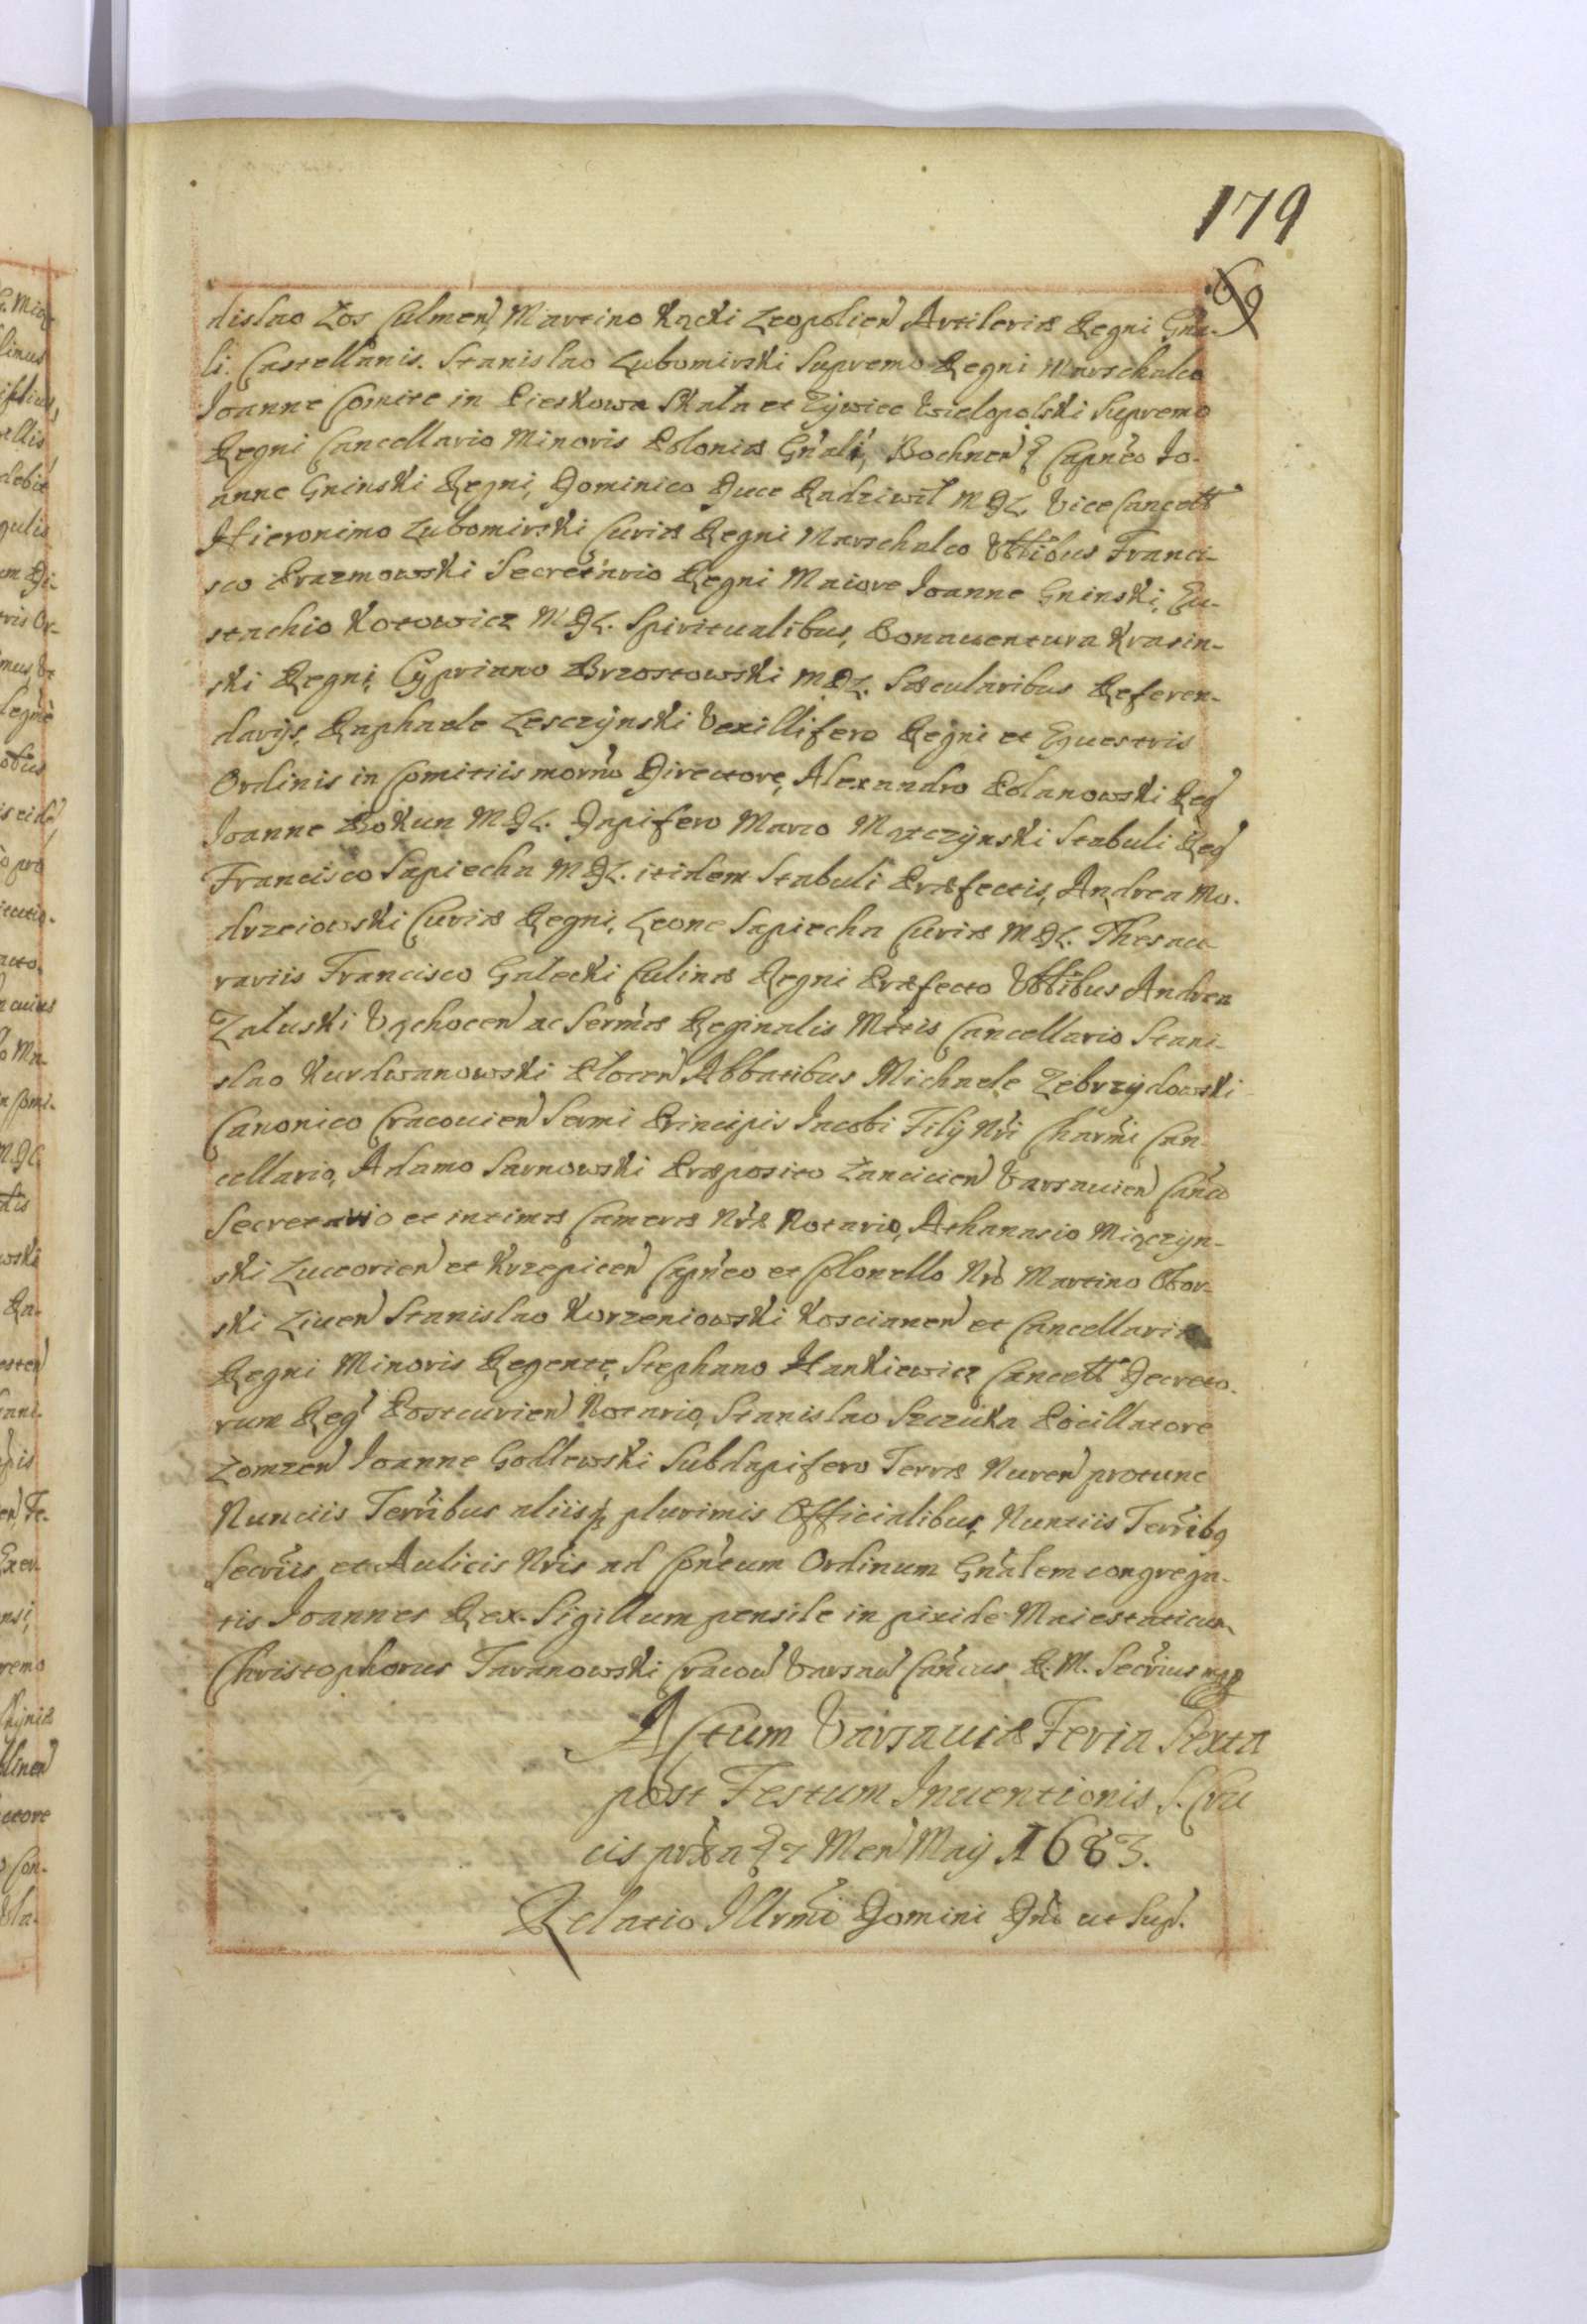 179
69
dislao Łos Culmen, Martino Kącki Leopolien Artileriæ Regni Gna-
li. Castellanis. Stanislao Lubomirski Supremo Regni Marschalco
Joanne Comite in Pieskowa Skała et Zÿwiec Wielopolski Supremo
Regni Cancellario Minoris Poloniæ Gn'ali, Bochnen & Capn'eo Jo-
anne Gninski Regni, Dominico Duce Radziwił MDL. Vice Cancell
Hieronimo Lubomirski Curiæ Regni Marschalco Vblibus Franci-
sco Prazmowski Secretario Regni Maiore Joanne Gninski, Eu-
stachio Kotowicz MDL. Spiritualibus, Bonauentura Krasin-
ski Regni, Cÿpriano Brzostowski MDL. Sæcularibus Referen-
darijs, Raphaele Lesczÿnski Vexillifero Regni et Equestris
Ordinis in Comitiis morno Directore, Alexandro Polanowski Reg
Joanne Bokun MDL. Dapifero Marco Matczÿnski Stabuli Reg
Francisco Sapiecha MDL. itidem Stabuli Præfectis, Andrea Mo-
drzeiowski Curiæ Regni, Leone Sapiecha Curiæ MDL. Thesau-
rariis Francisco Gałecki Culinæ Regni Præfecto Vblibus Andrea
Załuski Vąchocen ac Serm'æ Reginalis Mttis Cancellario Stani-
slao Kurdwanowski Plocen Abbatibus Michaele Zebrzÿdowski
Canonico Cracouien Sermi Principis Jacobi Filÿ Nri Charmi Can
cellario, Adamo Sarnowski Præposito Łancicien Varsauien Can'co
Secretario et intimæ Cameræ Nræ Notario, Athanasio Miączÿn-
ski Luceorien et Krzepicen Capn'eo et Colonello Nro Martino Obor-
ski Liuen Stanislao Korzeniowski Koscianen et Cancellariæ
Regni Minoris Regente, Stephano Hankiewicz Cancell Decreto-
rum Reg Postcurien Notario, Stanislao Szczuka Pocillatore
Łomzen Joanne Godlewski Subdapifero Terræ Nuren protunc
Nunciis Terribus aliisq plurimis Officialibus, Nuntiis Terribq
Secriis et Aulicis Nris ad Con'tum Ordinum Gnalem congrega-
tis Joannes Rex. Sigillum pensile in pixide Maiestaticum
Christophorus Taranowski Cracou Varsau Can'cus R. M. Secrius mpp
Actum Varsauiæ Feria Sexta
post Festum Inuentionis S. Cru
cis prxa & 7 Men Maÿ A 1683.
Relatio Illrmi Domini Dni ut Sup.